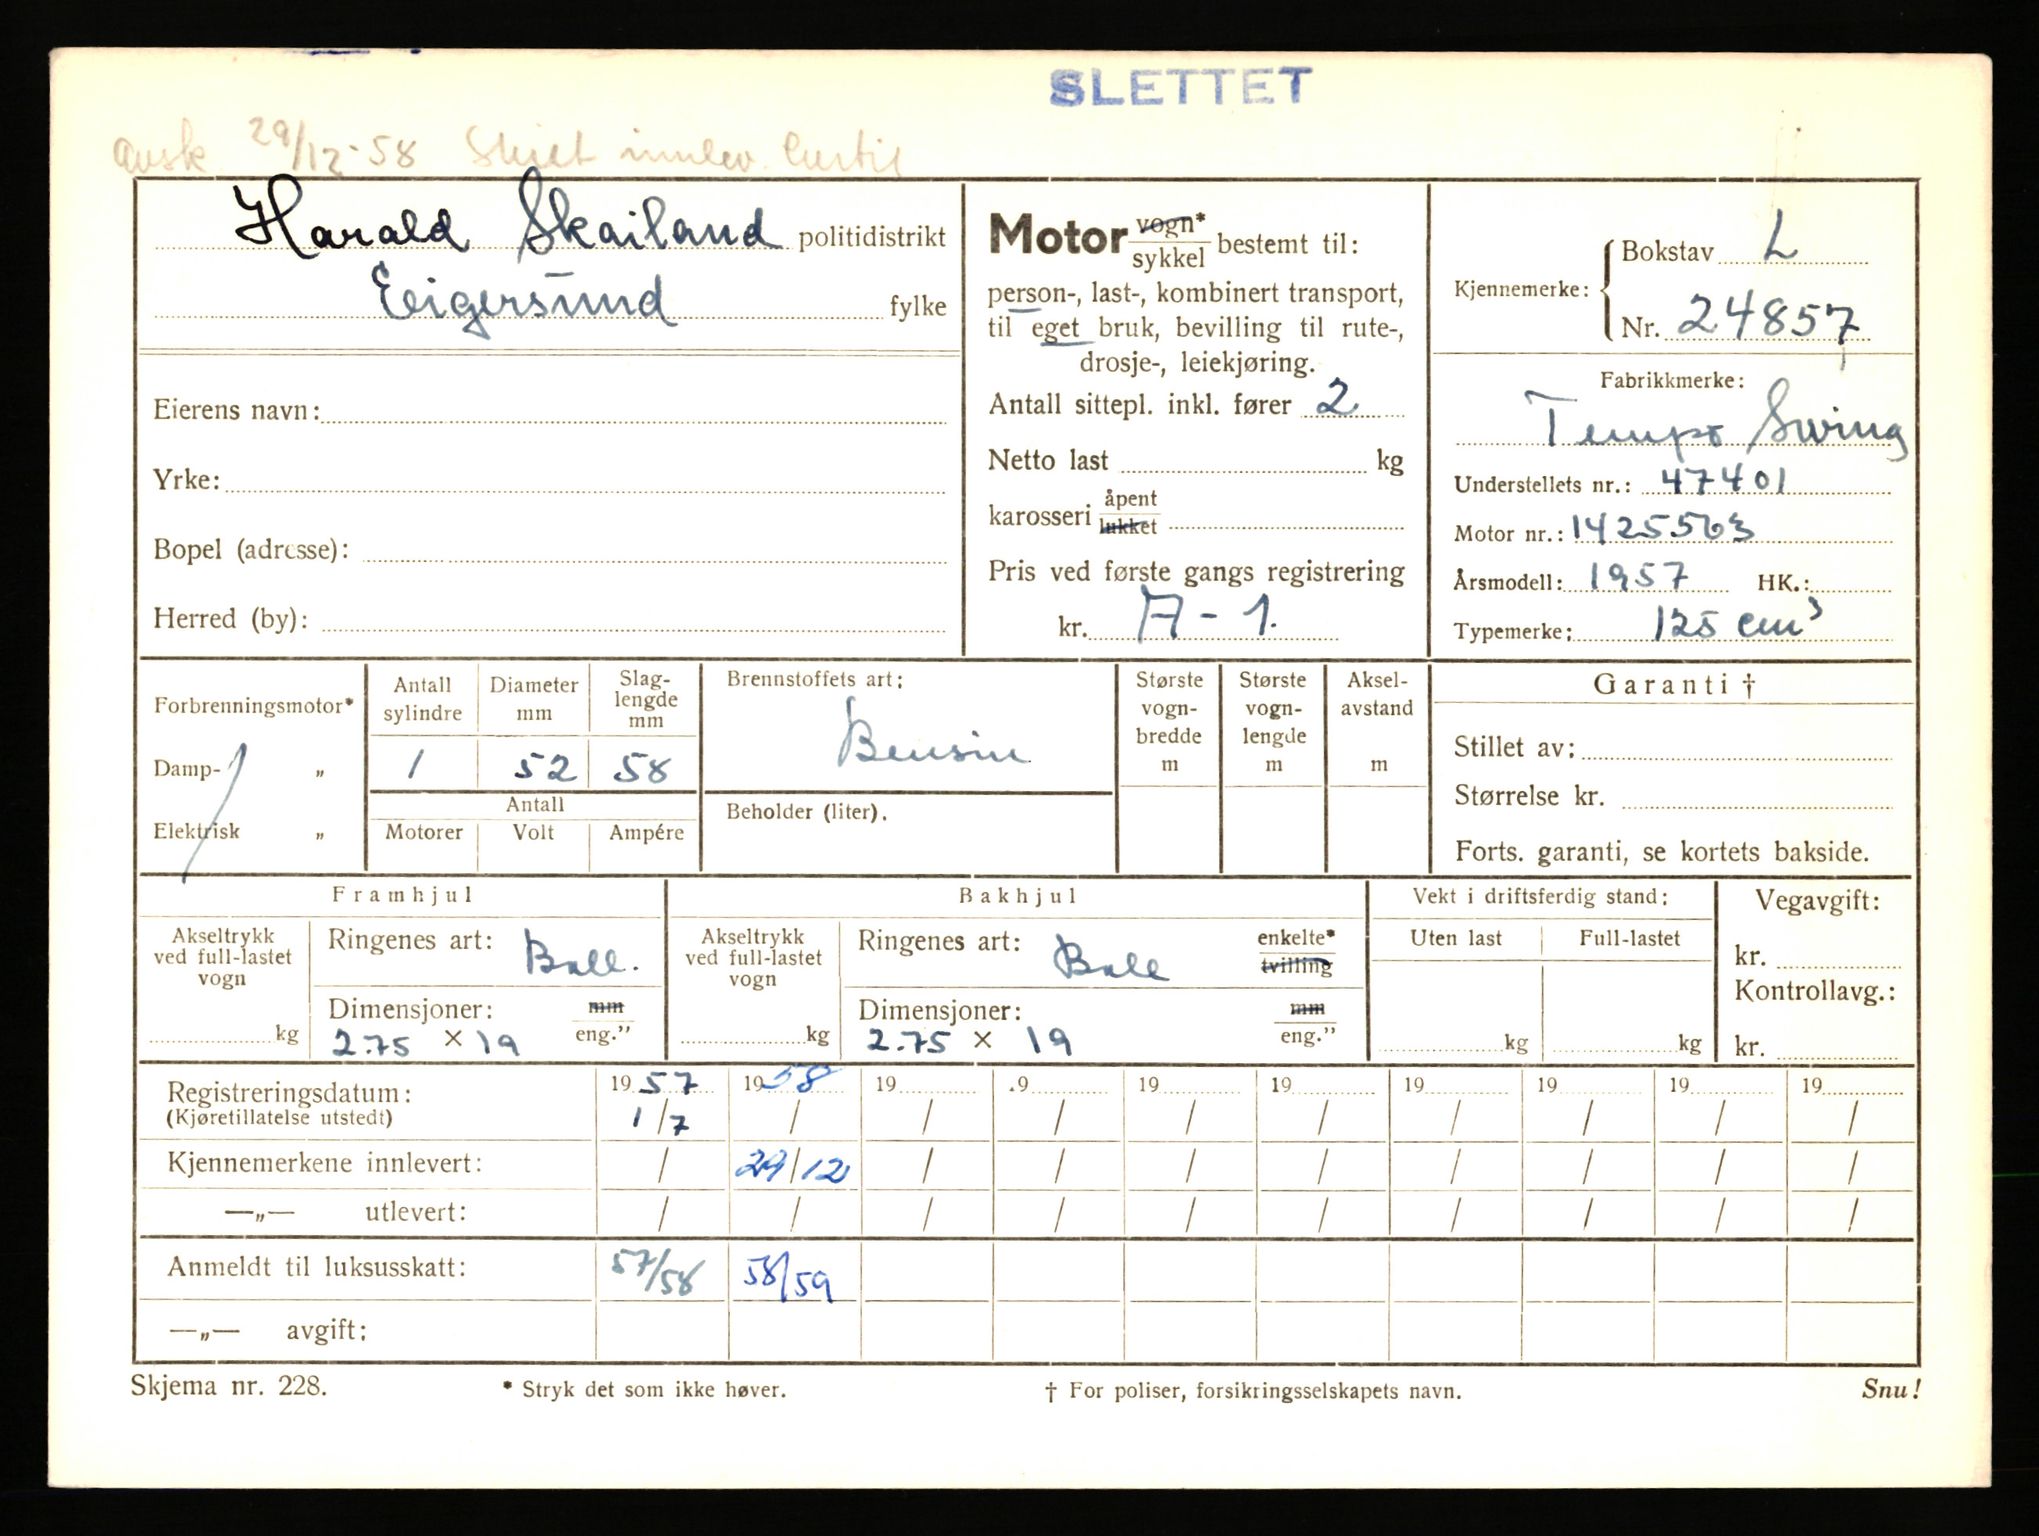 SLETTET
avsk 29/12-58 Skilt innlev.
Harald Skailand politidistrikt
Eigersund fylke
Eierens navn:
Yrke:
Bopel (adresse):
Herred (by):
Motor vogn* / sykkel bestemt til:
person-, last-, kombinert transport,
til eget bruk, bevilling til rute-,
drosje-, leiekjøring.
Antall sittepl. inkl. fører 2
Netto last kg
karosseri åpent / lukket
Pris ved første gangs registrering
kr. A-1.
Kjennemerke: Bokstav L
Nr. 24857
Fabrikkmerke:
Tempo Swing
Understellets nr.: 47401
Motor nr.: 1425563
Årsmodell: 1957 HK.:
Typemerke: 125 cm³
Forbrenningsmotor*
Damp- „
Elektrisk „
Antall sylindre 1
Diameter mm 52
Slag-lengde mm 58
Antall
Motorer Volt Ampére
Brennstoffets art:
Bensin
Beholder (liter).
Største vogn-bredde m
Største vogn-lengde m
Aksel-avstand m
Garanti †
Stillet av:
Størrelse kr.
Forts. garanti, se kortets bakside.
Framhjul
Akseltrykk ved full-lastet vogn
kg
Ringenes art: Ball.
Dimensjoner: mm / eng.”
2.75 × 19
Bakhjul
Akseltrykk ved full-lastet vogn
kg
Ringenes art: Ball enkelte* / tvilling
Dimensjoner: mm / eng.”
2.75 × 19
Vekt i driftsferdig stand:
Uten last Full-lastet
kg kg
Vegavgift:
kr.
Kontrollavg.:
kr.
Registreringsdatum: 19 57 19 58 19 .9 19 19 19 19 19 19
(Kjøretillatelse utstedt) 1/7 / / / / / / / / /
Kjennemerkene innlevert: / 29/12 / / / / / / / /
—„— utlevert: / / / / / / / / / /
Anmeldt til luksusskatt: 57/58 58/59
—„— avgift:
Skjema nr. 228. * Stryk det som ikke høver. † For poliser, forsikringsselskapets navn. Snu!